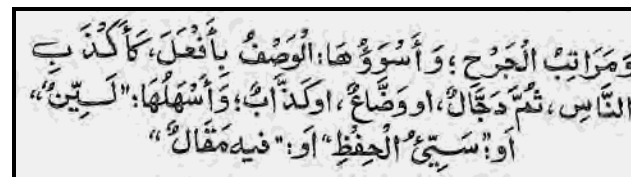 وَمَرَاتِبُ الْجَرْحِ؛ وَأَسْوَؤُهَا: الْوَصْفُ بِأَفْعَلَ، كَأَكْذَبِ
النَّاسِ، ثُمَّ دَجَّالٌ، اووَضَّاعٌ، اوكَذَّابٌ؛ وَأَسْهَلُهَا: "لَيِّنٌ"،
اَو: "سَيِّئُ الْحِفْظِ" اَو: "فيه مَقَالٌ"